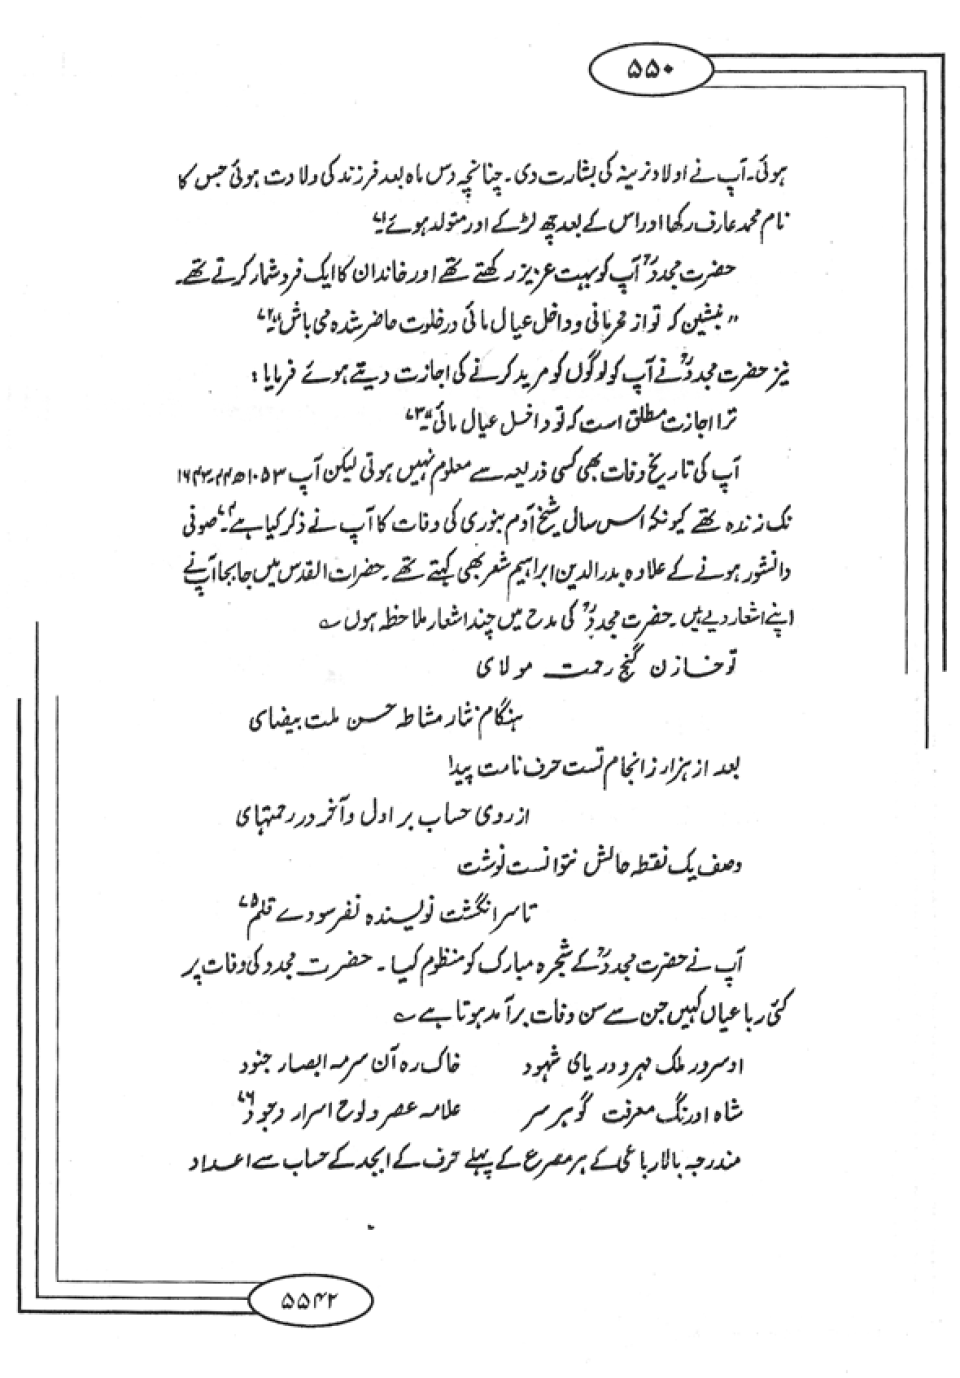 ۵۵۰
ہوئی۔ آپ نے اولاد نرینہ کی بشارت دی۔ چنانچہ دس ماہ بعد فرزند کی ولادت ہوئی جس کا
نام محمد عارف رکھا اور اس کے بعد چھ لڑکے اور متولد ہوئے۔۱؎
حضرت مجددؒ آپ کو بہت عزیز رکھتے تھے اور خاندان کا ایک فرد شمار کرتے تھے۔
”بنشین کہ تو از محرمانی و داخل عیال مائی در خلوت حاضر شدہ می باش“۔۲؎
نیز حضرت مجددؒ نے آپ کو لوگوں کو مرید کرنے کی اجازت دیتے ہوئے فرمایا:
ترا اجازت مطلق است کہ تو داخل عیال مائی“۔۳؎
آپ کی تاریخ وفات بھی کسی ذریعہ سے معلوم نہیں ہوتی لیکن آپ ۱۰۵۳ھ
تک زندہ تھے کیونکہ اس سال شیخ آدم بنوری کی وفات کا آپ نے ذکر کیا ہے۔۴؎ صوفی
دانشور ہونے کے علاوہ بدر الدین ابراہیم شعر بھی کہتے تھے۔ حضرات القدس میں جابجا آپ نے
اپنے اشعار دیے ہیں۔ حضرت مجددؒ کی مدح میں چند اشعار ملاحظہ ہوں ؎
تو خازن گنج رحمت مولای
ہنگام نثار مشاطہ حسن ملت بیضای
بعد از ہزار ز انجام تست حرف نامت پیدا
از روی حساب بر اول و آخر در رحمتہای
وصف یک نقطہ حالش نتوانست نوشت
تا سر انگشت نویسندہ نفرسودے قلم۵؎
آپ نے حضرت مجددؒ کے شجرہ مبارک کو منظوم کیا۔ حضرت مجدد کی وفات پر
کئی رباعیاں کہیں جن سے سن وفات برآمد ہوتا ہے ؎
او سرور ملک بہر و دریای شہود خاک رہ آن سرمہ ابصار جنود
شاہ اورنگ معرفت گوہر سر علامہ عصر و لوح اسرار وجود۶؎
مندرجہ بالا رباعی کے ہر مصرع کے پہلے حرف کے ابجد کے حساب سے اعداد
۵۵۴۲